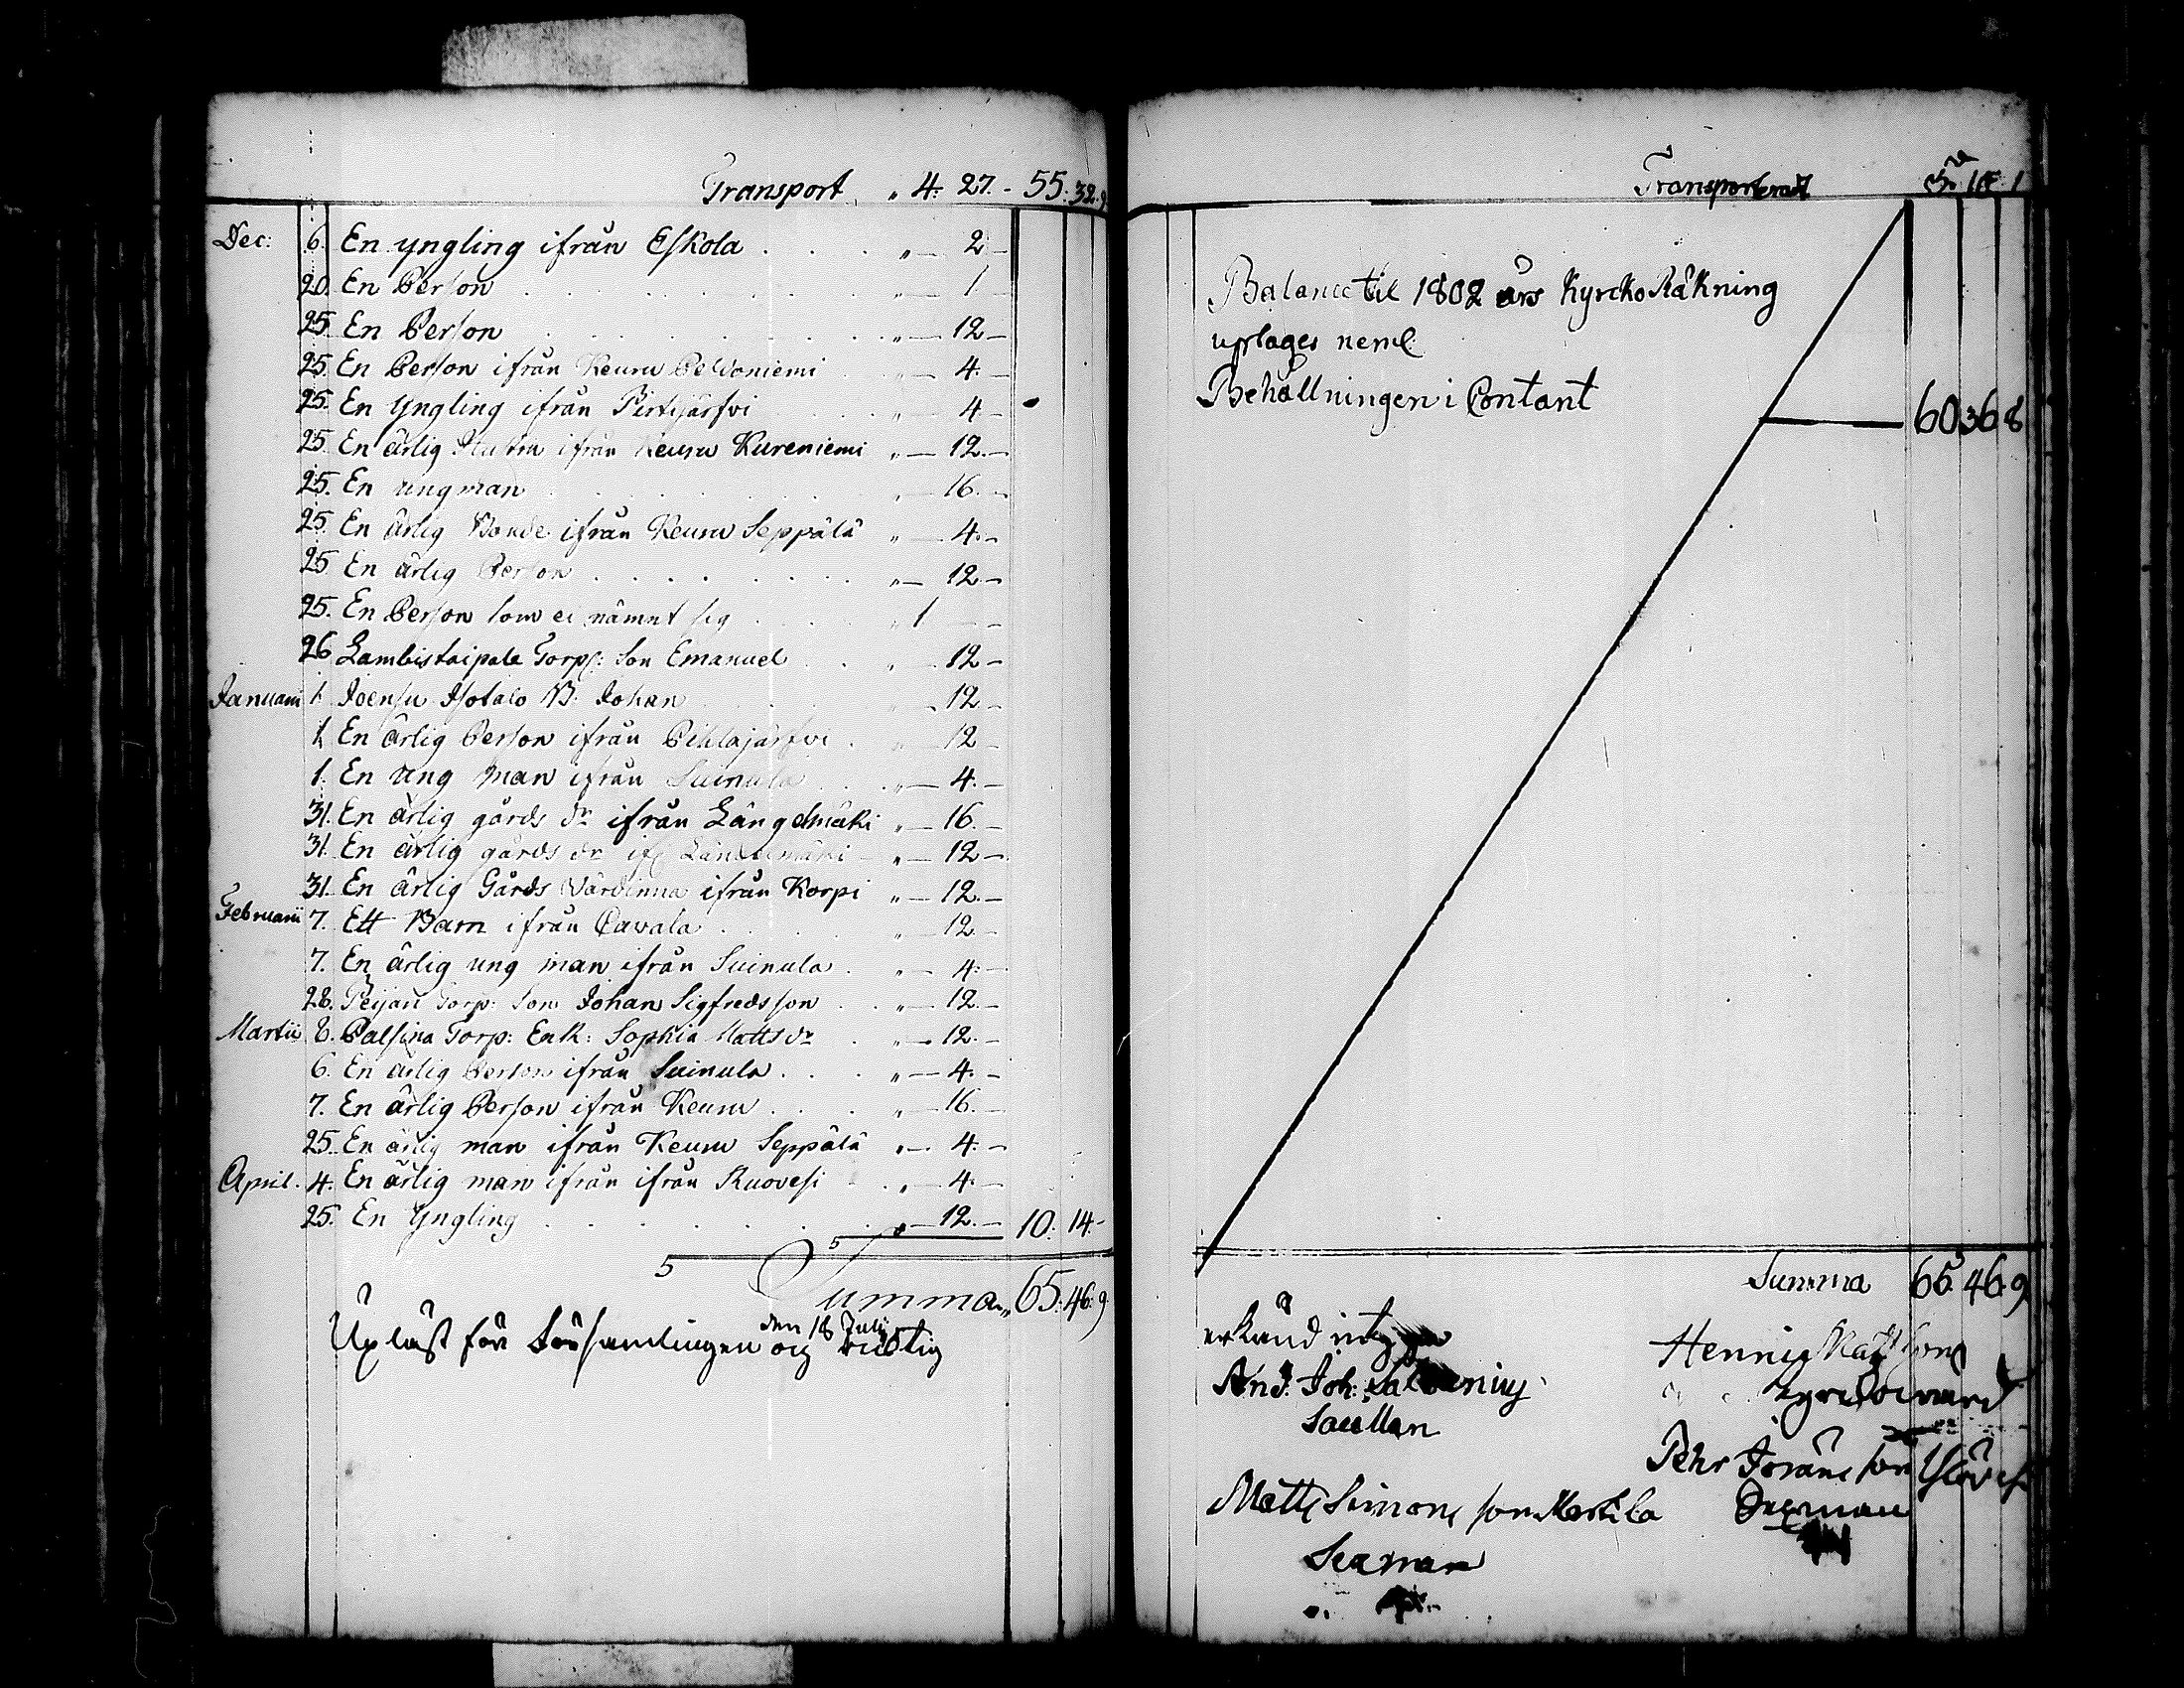 Transport " 4. 27. - 55. 32. 9.
Dec: 6. En yngling ifrån Eskola . . . " — 2 —
20. En Person . . . " — 1 —
25. En Person . . . " — 12 —
25. En Person ifrån Keuru Peldoniemi " — 4. —
25. En Yngling ifrån Pirtijärfvi " — 4 —
25. En ärlig Hustru ifrån Keuru Kureniemi " — 12. —
25. En ung man . . . " — 16. —
25. En ärlig Bonde ifrån Keuru Seppälä " — 4. —
25. En ärlig Person . . . " — 12. —
25. En Person som ei nämnt sig . . . " 1 — —
26 Lambistaipale Torp: Son Emanuel . . " — 12 —
Januarii 1. Joensu Isotalo B. Johan " — 12. —
1. En ärlig Person ifrån Pihlajärfvi . " — 12 —
1. En ung man ifrån Suinula . . " — 4. —
31. En ärlig gårds dr ifrån Längelmäki " — 16. —
31. En ärlig gårds dr if: Längelmäki — " — 12 —
31. En ärlig Gårds Värdinna ifrån Korpi " — 12. —
Februarii 7. Ett Barn ifrån Pavala . . . " — 12. —
7. En ärlig ung man ifrån Suinula . " — 4. —
28. Peijari Torp: Son Johan Sigfredsson . . " — 12. —
Martii 6. Palsina Torp: Enk: Sophia Matts dr . " — 12. —
6. En ärlig Person ifrån Suinula . . . " — 4. —
7. En ärlig Person ifrån Keuru . . . " — 16. —
25. En ärlig man ifrån Keuru Seppälä " — 4. —
April. 4. En ärlig man ifrån ifrån Ruovesi . " — 4. —
25. En Yngling . . . " — 12. — 10. 14. -
Summa " 65. 46. 9.
Upläst för Församlingen den 18 Julii och riktig
Transporterad 5. 10. 1
Balance til 1802 års Kyrcko Räkning
uptages neml:
Behållningen i Contant — 60 36 8
Summa 65. 46. 9
erkänd intygar
And: Joh:
Matts Simons son Martila
Sexman
Hennig Matts son
Kyrckovärd
Pehr Jörans son
Sexman